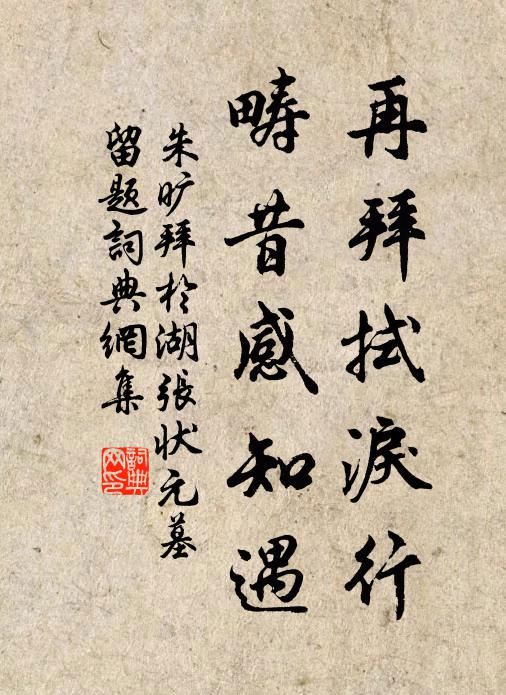 再拜拭淚行
疇昔感知遇
朱旷拜於湖張狀元墓
留题詞典網集
詞典网印